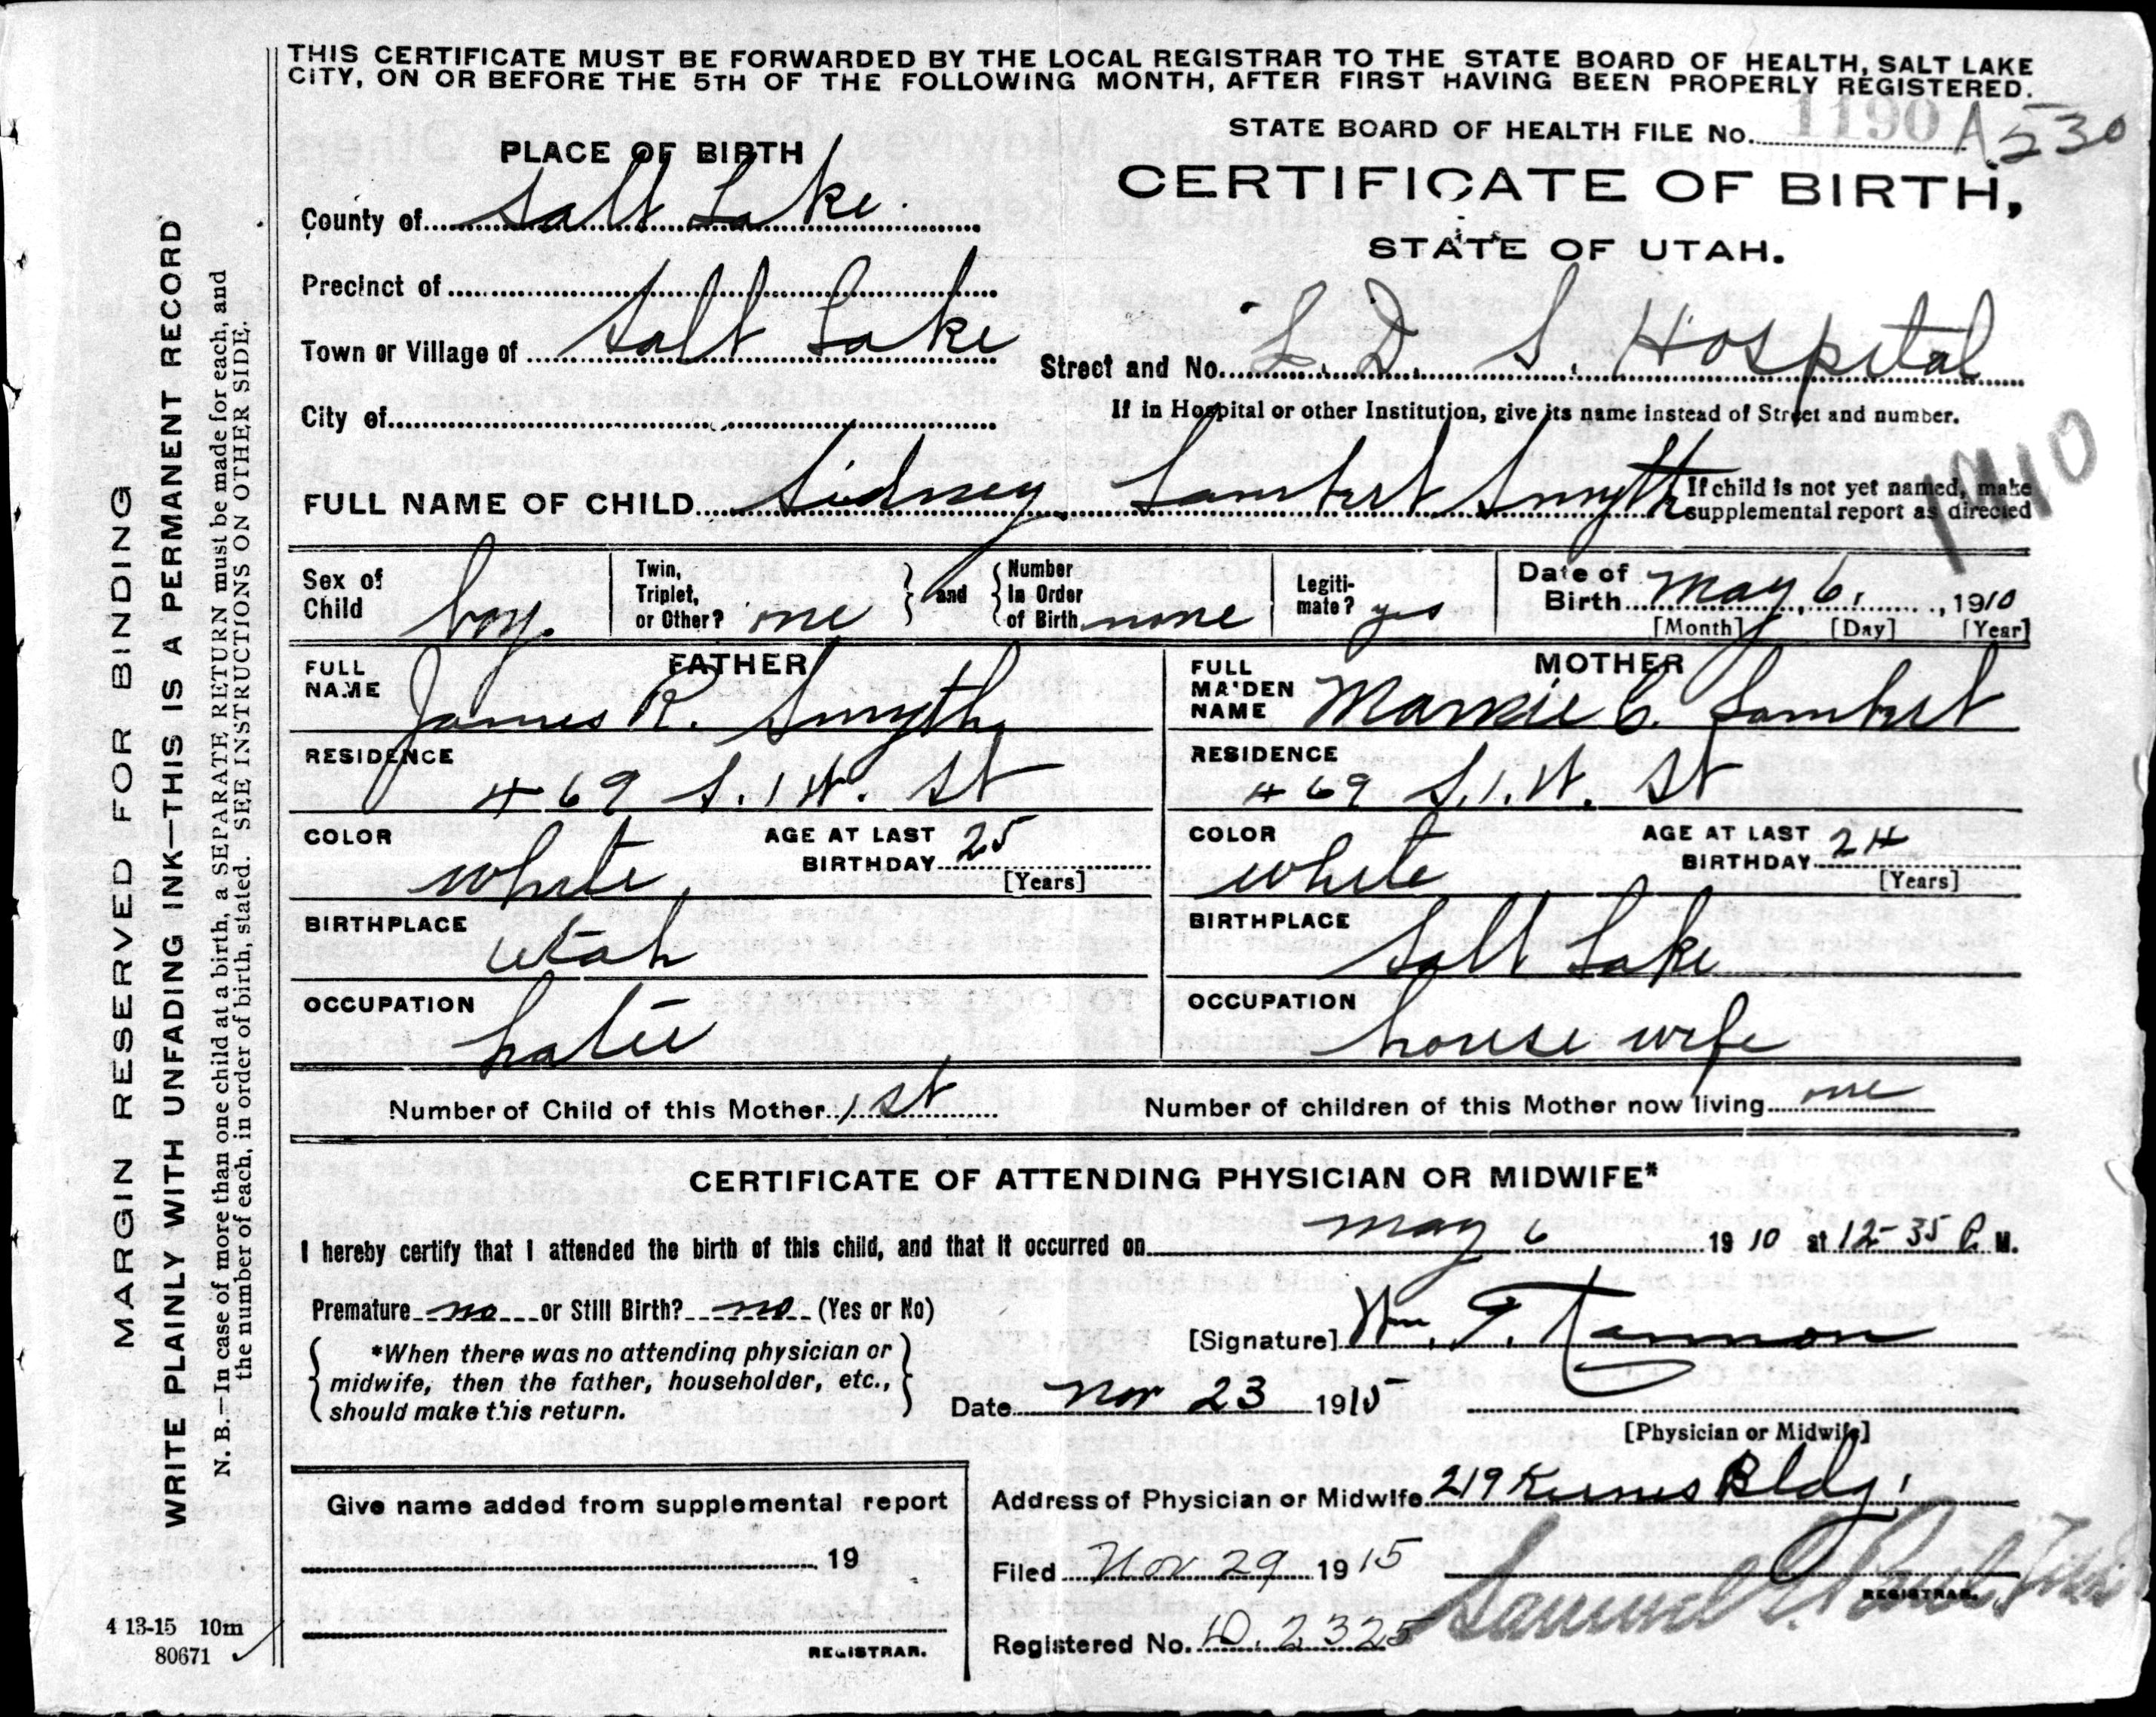 THIS CERTIFICATE MUST BE FORWARDED BY THE LOCAL REGISTRAR TO THE STATE BOARD OF HEALTH, SALT LAKE
CITY, ON OR BEFORE THE 5TH OF THE FOLLOWING MONTH, AFTER FIRST HAVING BEEN PROPERLY REGISTERED.
STATE BOARD OF HEALTH FILE No. 1190 A530
PLACE OF BIRTH
CERTIFICATE OF BIRTH,
STATE OF UTAH.
County of Salt Lake.
Precinct of
Town or Village of Salt Lake
Street and No. L. D. S. Hospital
City of
If in Hospital or other Institution, give its name instead of Street and number.
1910
FULL NAME OF CHILD Sidney Lambert Smyth
If child is not yet named, make
supplemental report as directed
Sex of Child boy.
Twin, Triplet, or Other? one
and
Number In Order of Birth none
Legiti-mate? yes
Date of Birth May 6, 1910
[Month] [Day] [Year]
FATHER
FULL NAME James R. Smyth
MOTHER
FULL MAIDEN NAME C. Lambert
RESIDENCE 469 S. 1 W. St
RESIDENCE 469 S. 1. W. St
COLOR white
AGE AT LAST BIRTHDAY 25
[Years]
COLOR white
AGE AT LAST BIRTHDAY 24
[Years]
BIRTHPLACE Utah
BIRTHPLACE Salt Lake
OCCUPATION
OCCUPATION house wife
Number of Child of this Mother 1st
Number of children of this Mother now living one
CERTIFICATE OF ATTENDING PHYSICIAN OR MIDWIFE*
I hereby certify that I attended the birth of this child, and that it occurred on May 6 1910 at 12-35 P. M.
Premature no or Still Birth? no (Yes or No)
[Signature] Wm. T. Cannon
*When there was no attending physician or
midwife, then the father, householder, etc.,
should make this return.
Date Nov 23 1915
[Physician or Midwife]
Give name added from supplemental report
19
REGISTRAR.
Address of Physician or Midwife 219 Kearns Bldg.
Filed Nov 29 1915
Samuel G. Paul
REGISTRAR.
Registered No. D. 2325
MARGIN RESERVED FOR BINDING
WRITE PLAINLY WITH UNFADING INK—THIS IS A PERMANENT RECORD
N. B.—In case of more than one child at a birth, a SEPARATE RETURN must be made for each, and
the number of each, in order of birth, stated. SEE INSTRUCTIONS ON OTHER SIDE.
4 13-15 10m
80671